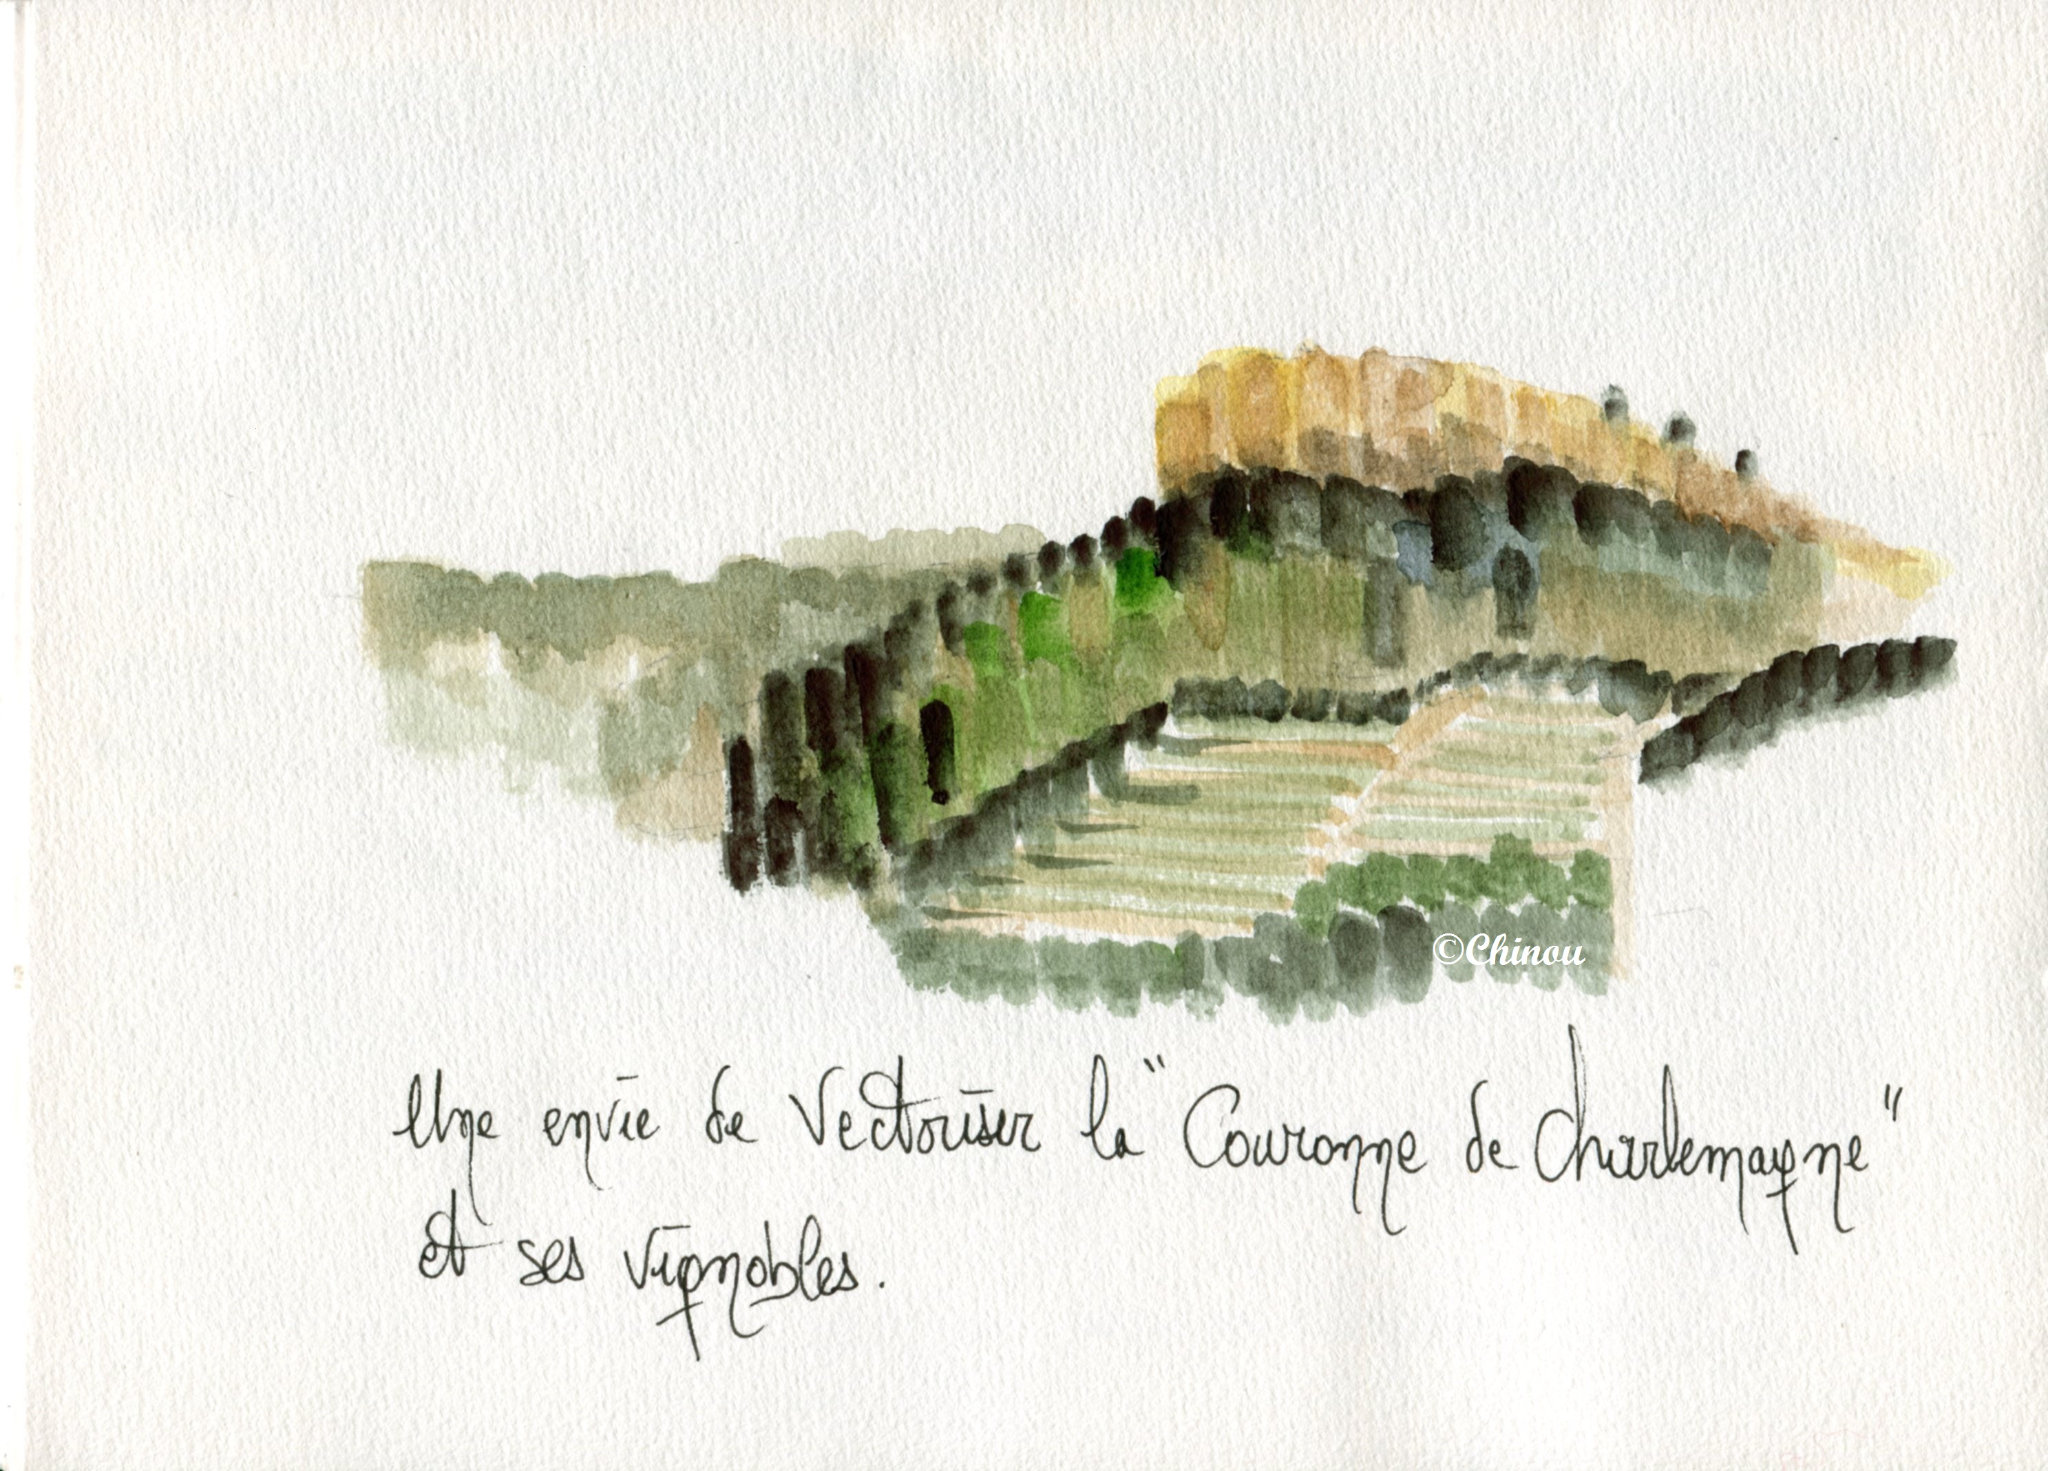 ©Chinou
Une envie de Vectoriser la "Couronne de Charlemagne"
et ses vignobles.